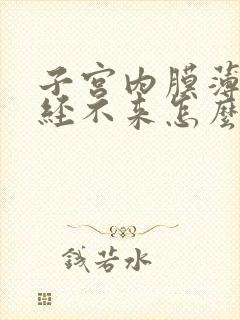 子宫内膜薄
经不来怎麼
钱若水